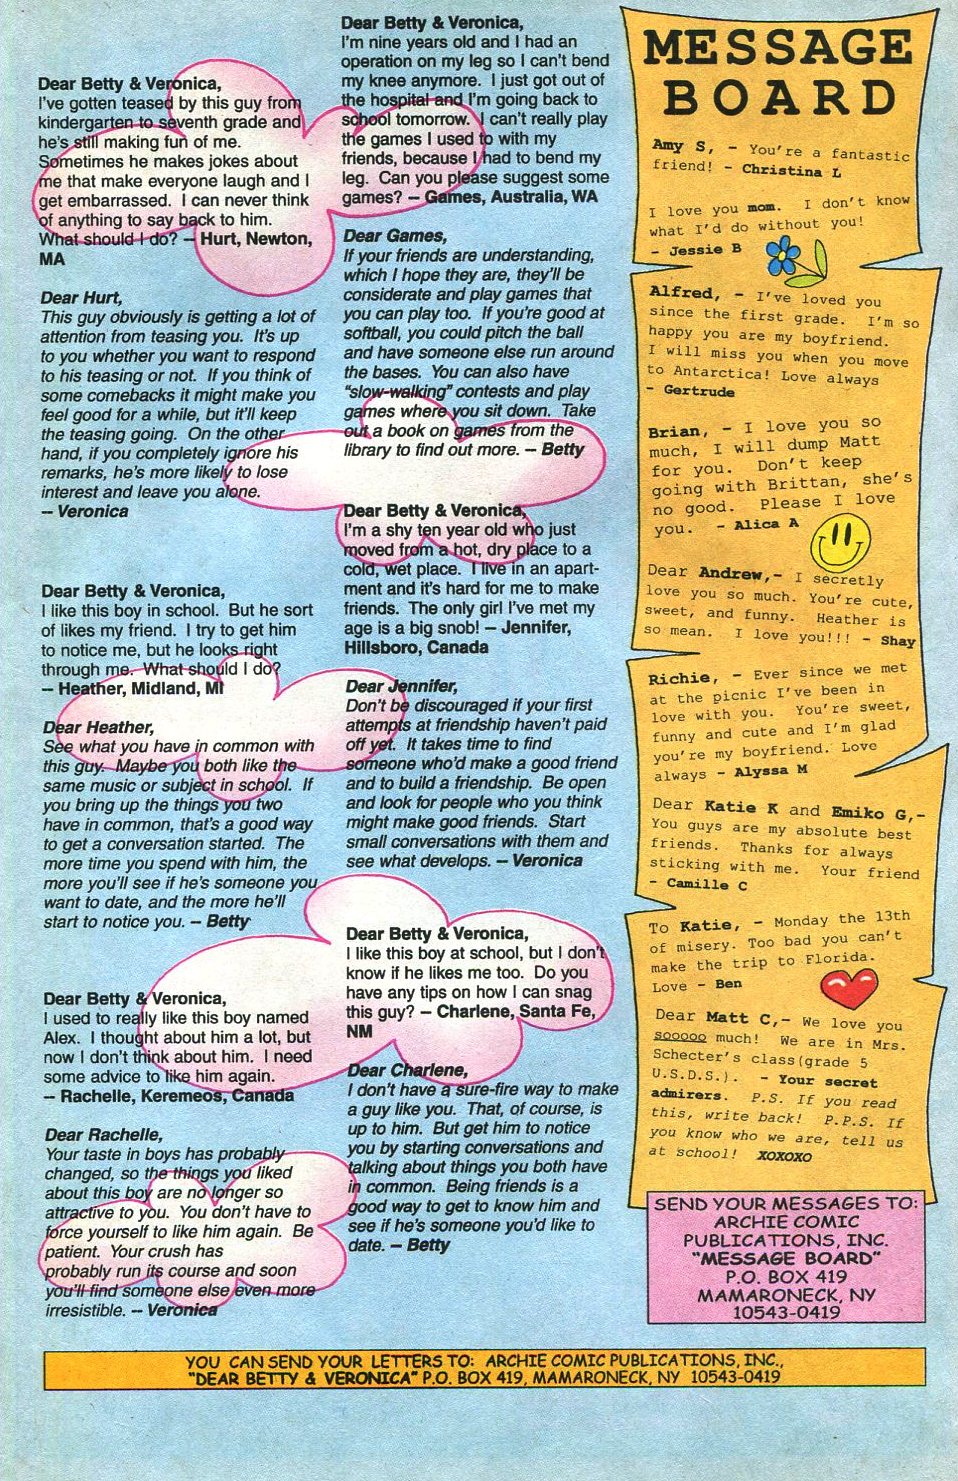 Dear Betty & Veronica,
I've gotten teased by this guy from
kindergarten to seventh grade and
he's still making fun of me.
Sometimes he makes jokes about
me that make everyone laugh and I
get embarrassed. I can never think
of anything to say back to him.
What should I do? – Hurt, Newton,
MA
Dear Hurt,
This guy obviously is getting a lot of
attention from teasing you. It's up
to you whether you want to respond
to his teasing or not. If you think of
some comebacks it might make you
feel good for a while, but it'll keep
the teasing going. On the other
hand, if you completely ignore his
remarks, he's more likely to lose
interest and leave you alone.
– Veronica
Dear Betty & Veronica,
I like this boy in school. But he sort
of likes my friend. I try to get him
to notice me, but he looks right
through me. What should I do?
– Heather, Midland, MI
Dear Heather,
See what you have in common with
this guy. Maybe you both like the
same music or subject in school. If
you bring up the things you two
have in common, that's a good way
to get a conversation started. The
more time you spend with him, the
more you'll see if he's someone you
want to date, and the more he'll
start to notice you. – Betty
Dear Betty & Veronica,
I used to really like this boy named
Alex. I thought about him a lot, but
now I don't think about him. I need
some advice to like him again.
– Rachelle, Keremeos, Canada
Dear Rachelle,
Your taste in boys has probably
changed, so the things you liked
about this boy are no longer so
attractive to you. You don't have to
force yourself to like him again. Be
patient. Your crush has
probably run its course and soon
you'll find someone else even more
irresistible. – Veronica
Dear Betty & Veronica,
I'm nine years old and I had an
operation on my leg so I can't bend
my knee anymore. I just got out of
the hospital and I'm going back to
school tomorrow. I can't really play
the games I used to with my
friends, because I had to bend my
leg. Can you please suggest some
games? – Games, Australia, WA
Dear Games,
If your friends are understanding,
which I hope they are, they'll be
considerate and play games that
you can play too. If you're good at
softball, you could pitch the ball
and have someone else run around
the bases. You can also have
"slow-walking" contests and play
games where you sit down. Take
out a book on games from the
library to find out more. – Betty
Dear Betty & Veronica,
I'm a shy ten year old who just
moved from a hot, dry place to a
cold, wet place. I live in an apart-
ment and it's hard for me to make
friends. The only girl I've met my
age is a big snob! – Jennifer,
Hillsboro, Canada
Dear Jennifer,
Don't be discouraged if your first
attempts at friendship haven't paid
off yet. It takes time to find
someone who'd make a good friend
and to build a friendship. Be open
and look for people who you think
might make good friends. Start
small conversations with them and
see what develops. – Veronica
Dear Betty & Veronica,
I like this boy at school, but I don't
know if he likes me too. Do you
have any tips on how I can snag
this guy? – Charlene, Santa Fe,
NM
Dear Charlene,
I don't have a sure-fire way to make
a guy like you. That, of course, is
up to him. But get him to notice
you by starting conversations and
talking about things you both have
in common. Being friends is a
good way to get to know him and
see if he's someone you'd like to
date. – Betty
MESSAGE
BOARD
Amy S, – You're a fantastic
friend! – Christina L
I love you mom. I don't know
what I'd do without you!
– Jessie B
Alfred, – I've loved you
since the first grade. I'm so
happy you are my boyfriend.
I will miss you when you move
to Antarctica! Love always
– Gertrude
Brian, – I love you so
much, I will dump Matt
for you. Don't keep
going with Brittan, she's
no good. Please I love
you. – Alica A
Dear Andrew,– I secretly
love you so much. You're cute,
sweet, and funny. Heather is
so mean. I love you!!! – Shay
Richie, – Ever since we met
at the picnic I've been in
love with you. You're sweet,
funny and cute and I'm glad
you're my boyfriend. Love
always – Alyssa M
Dear Katie K and Emiko G,–
You guys are my absolute best
friends. Thanks for always
sticking with me. Your friend
– Camille C
To Katie, – Monday the 13th
of misery. Too bad you can't
make the trip to Florida.
Love – Ben
Dear Matt C,– We love you
sooooo much! We are in Mrs.
Schecter's class(grade 5
U.S.D.S.). – Your secret
admirers. P.S. If you read
this, write back! P.P.S. If
you know who we are, tell us
at school! XOXOXO
SEND YOUR MESSAGES TO:
ARCHIE COMIC
PUBLICATIONS, INC.
"MESSAGE BOARD"
P.O. BOX 419
MAMARONECK, NY
10543-0419
YOU CAN SEND YOUR LETTERS TO: ARCHIE COMIC PUBLICATIONS, INC.,
"DEAR BETTY & VERONICA" P.O. BOX 419, MAMARONECK, NY 10543-0419